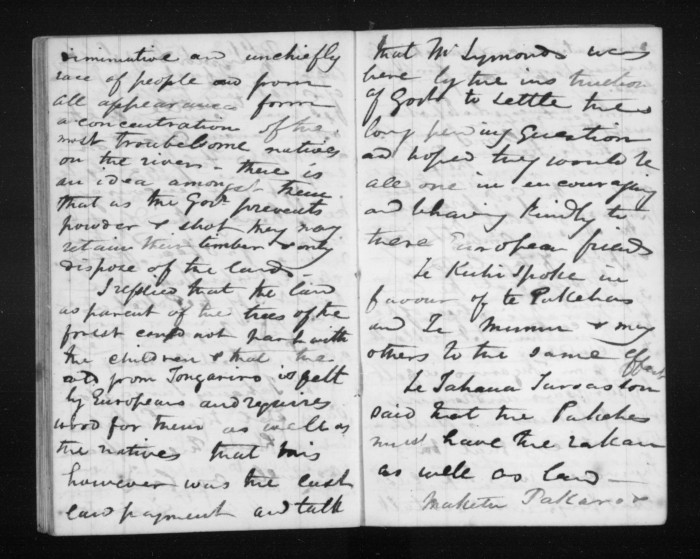 diminutive and unchiefly
race of people and from
all appearance form
a concentration of the
most troublesome natives
on the rivers - there is
an idea amongst them
that as the Govr prevents
powder & shot they may
retain their timber & only
dispose of the lands -
I replied that the land
as parent of the trees of the
forest could not part with
the children & that the
from Tongariro is felt
by Europeans and requires
wood for them as well as
the natives that this
however was the last
land payment and talk
that Mr Symonds was
here by the instruction
of Govt to settle this
long pending question
and hoped they would be
all one in encouraging
and behaving kindly to
there European friends
Te Kuhi spoke in
favour of te Pakehas
and Te & may
others to the same effect
Te Tahana son
said that the Pakehas
must have the rakau
as well as land -
Maketu